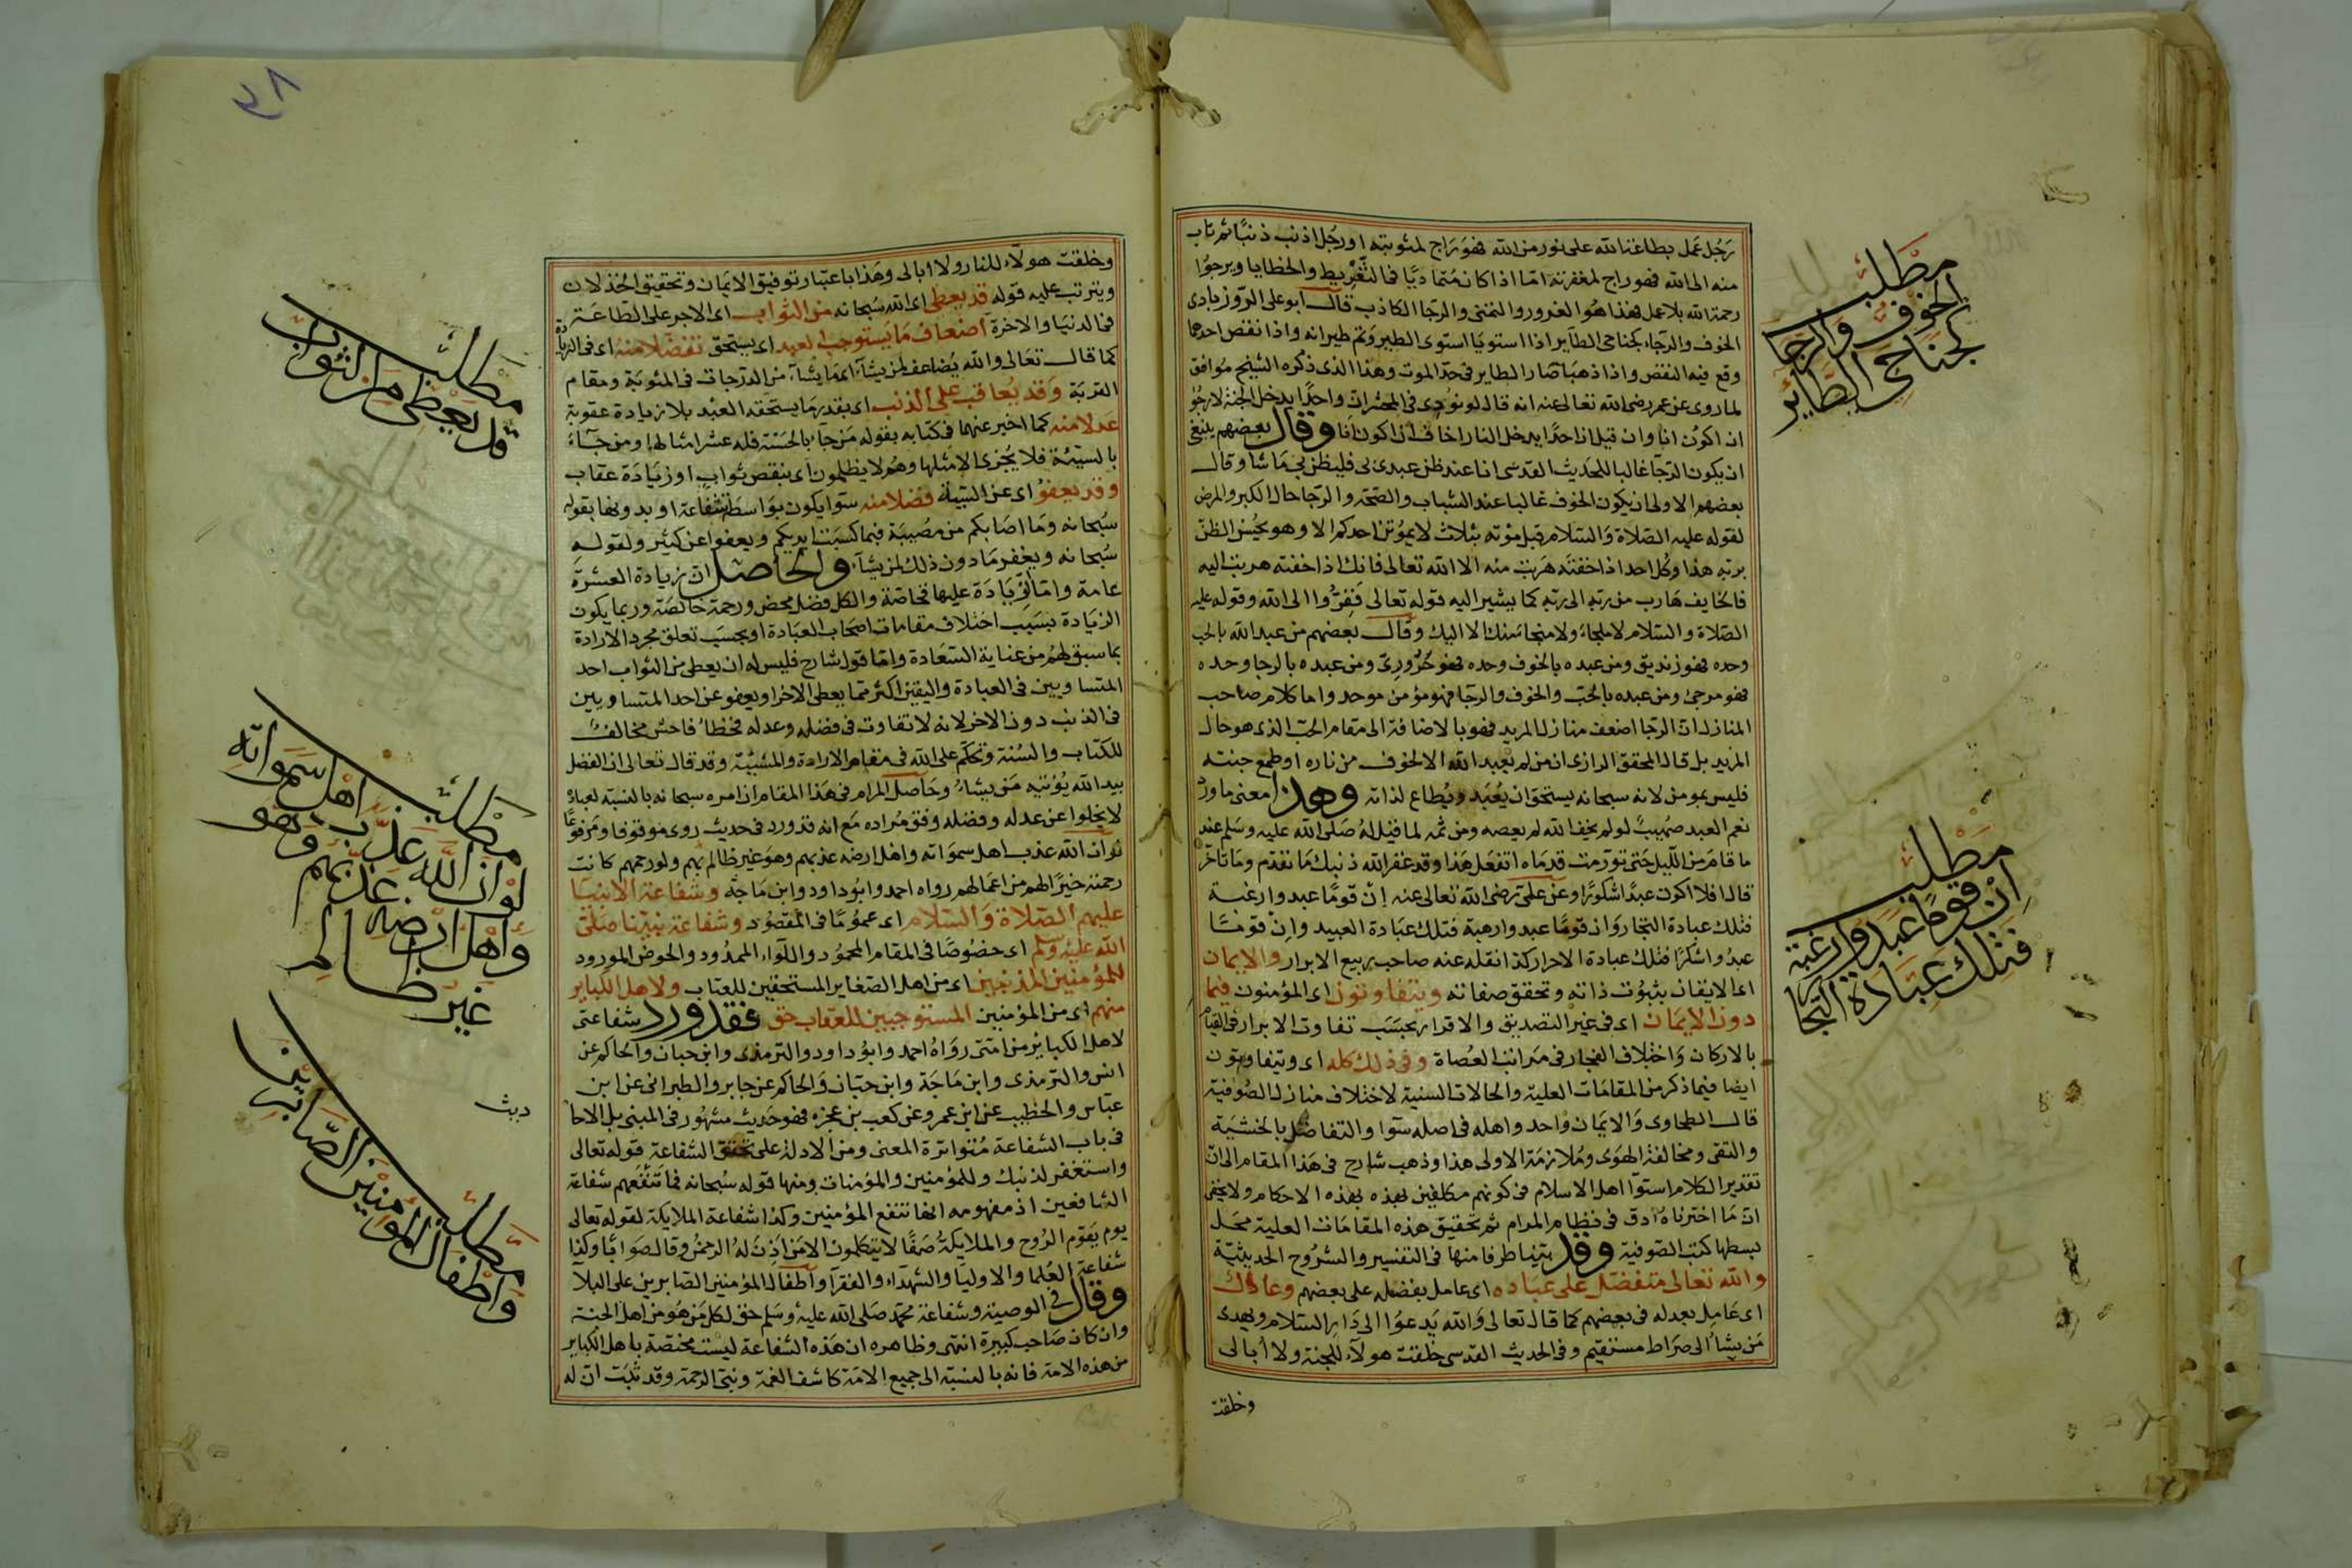 رجل عمل بطاعة الله على نور من الله فهو راج لمثوبته او رجل اذنب ذنبا ثم تاب
منه الى الله فهو راج لمغفرته اما اذا كان متماديا فى التفريط والخطايا ويرجوا
رحمة الله بلا عمل فهذا هو الغرور والتمنى والرجا الكاذب قال ابو على الروزبادى
الخوف والرجاء كجناحى الطاير اذا استويا استوى الطير وتم طيرانه واذا نقص احدهما
وقع فيه النقص واذا ذهبا صار الطاير فى حد الموت وهذا الذى ذكره الشيخ موافق
لما روى عن عمر رضى الله تعالى عنه انه قال لو نودى فى المحشر ان واحدا يدخل الجنة لارجوا
ان اكون انا وان قيل ان احدا يدخل النار اخاف ان اكون انا وقال بعضهم ينبغى
ان يكون الرجا غالبا للحديث القدسى انا عند ظن عبدى بى فليظن بى ما شا وقال
بعضهم الاولى ان يكون الخوف غالبا عند الشباب والصحة والرجا حال الكبر والمرض
لقوله عليه الصلاة والسلام قبل موته بثلاث لا يموتن احدكم الا وهو يحسن الظن
بربه هذا وكل احد اذا خفته هربت منه الا الله تعالى فانك اذا خفته هربت اليه
فالخايف هارب من ربه الى ربه كما يشير اليه قوله تعالى ففروا الى الله وقوله عليه
الصلاة والسلام لا ملجاء ولا منجا منك الا اليك وقال بعضهم من عبد الله بالحب
وحده فهو زنديق ومن عبده بالخوف وحده فهو حرورى ومن عبده بالرجا وحده
فهو مرجئ ومن عبده بالحب والخوف والرجا فهو مؤمن موحد واما كلام صاحب
المنازل ان الرجا اضعف منازل المريد فهو بالاضافة الى مقام الحب الذى هو حال
المريد بل قال المحقق الرازى ان من لم يعبد الله الا لخوف من ناره او طمع جنته
فليس بمومن لانه سبحانه يستحق ان يعبد ويطاع لذاته وهذا معنى ما ورد
نعم العبد صهيب لو لم يخف الله لم يعصه ومن ثمه لما قيل له صلى الله عليه وسلم عند
ما قام من الليل حتى تورمت قدماه اتفعل هذا وقد غفر الله ذنبك ما تقدم وما تاخر
قال افلا اكون عبدا شكورا وعن على رضى الله تعالى عنه ان قوما عبدوا رغبة
فتلك عبادة التجار وان قوما عبدوا رهبة فتلك عبادة العبيد وان قوما
عبدوا شكرا فتلك عبادة الاحرار كذا نقله عنه صاحب ربيع الابرار والايمان
اى الايقان بثبوت ذاته وتحقق صفاته ويتفاوتون اى المؤمنون فيما
دون الايمان اى فى غير التصديق والاقرار بحسب تفاوت الابرار فى القيام
بالاركان واختلاف الفجار فى مراتب العصاة وفى ذلك كله اى ويتفاوتون
ايضا فيما ذكر من المقامات العلية والحالات السنية لاختلاف منازل الصوفية
قال الطحاوى والايمان واحد واهله فى اصله سوآ والتفاضل بالخشية
والتقى ومخالفة الهوى وملازمة الاولى هذا وذهب شارح فى هذا المقام الى ان
تقدير الكلام استوآ اهل الاسلام فى كونهم مكلفين بهذه الاحكام ولا يخفى
ان ما اخترناه ادق فى نظام المرام ثم تحقيق هذه المقامات العلية محل
بسطها كتب الصوفية وقد بينا طرفا منها فى التفسير والشروح الحديثية
والله تعالى متفضل على عباده اى عامل بفضله على بعضهم وعادل
اى عامل بعدله فى بعضهم كما قال تعالى والله يدعوا الى دار السلام ويهدى
من يشاء الى صراط مستقيم وفى الحديث القدسى خلقت هولآء للجنة ولا ابالى
وخلقت
مطلب
الخوف والرجا
كجناحى الطائر
مطلب
ان قوما عبدوا رغبة
فتلك عبادة التجا
وخلقت هولآء للنار ولا ابالى وهذا باعتبار توفيق الايمان وتحقيق الخذلان
ويترتب عليه قوله قد يعطى اى الله سبحانه من الثواب اى الاجر على الطاعة
فى الدنيا والاخرة اضعاف ما يستوجبه العبد اى يستحق تفضلا منه اى فى الزيادة
كما قال تعالى والله يضاعف لمن يشآء اى ما يشآء من الدرجات فى المثوبة ومقام
القربة وقد يعاقب على الذنب اى بقدر ما يستحقه العبد بلا زيادة عقوبة
عدلا منه كما اخبر عنهما فى كتابه بقوله من جآء بالحسنة فله عشر امثالها ومن جآء
بالسيئة فلا يجزى الا مثلها وهم لا يظلمون اى بنقص ثواب او زيادة عقاب
وقد يعفو اى عن السيئة فضلا منه سوا يكون بواسطة شفاعة او بدونها بقوله
سبحانه وما اصابكم من مصيبة فبما كسبت ايديكم ويعفوا عن كثير ولقوله
سبحانه ويغفر ما دون ذلك لمن يشآء والحاصل ان زيادة العشرة
عامة واما الزيادة عليها فخاصة والكل فضل محض ورحمة خالصة وربما يكون
الزيادة بسبب اختلاف مقامات اصحاب العبادة او بحسب تعلق مجرد الارادة
بما سبق لهم من عناية السعادة واما قول شارح فليس له ان يعطى من الثواب احد
المتساويين فى العبادة واليقين اكثر مما يعطى الاخر او يعفو عن احد المتساويين
فى الذنب دون الاخر لانه لا تفاوت فى فضله وعدله فخطأ فاحش مخالف
للكتاب والسنة وتحكم على الله فى مقام الارادة والمشيئة وقد قال تعالى ان الفضل
بيد الله يؤتيه من يشاء وحاصل المرام فى هذا المقام ان امره سبحانه بالنسبة لعباده
لا يخلوا عن عدله وفضله وفق مراده مع انه قد ورد فى حديث روى موقوفا ومرفوعا
لو ان الله عذب اهل سمواته واهل ارضه عذبهم وهو غير ظالم بهم ولو رحمهم كانت
رحمته خيرا لهم من اعمالهم رواه احمد وابو داود وابن ماجه وشفاعة الانبيا
عليهم الصلاة والسلام اى عموما فى المقصود وشفاعة نبينا صلى
الله عليه وسلم اى خصوصا فى المقام المحمود واللوآء الممدود والحوض المورود
للمؤمنين المذنبين اى من اهل الصغاير المستحقين للعتاب ولاهل الكباير
منهم اى من المؤمنين المستوجبين للعقاب حق فقد ورد شفاعتى
لاهل الكباير من امتى رواه احمد وابو داود والترمذى وابن حبان والحاكم عن
انس والترمذى وابن ماجة وابن حبان والحاكم عن جابر والطبرانى عن ابن
عباس والخطيب عن ابن عمر وعن كعب بن عجزه فهو حديث مشهور فى المبنى بل الاحا
ديث
فى باب الشفاعة متواترة المعنى ومن الادلة على تحقق الشفاعة قوله تعالى
واستغفر لذنبك وللمؤمنين والمؤمنات ومنها قوله سبحانه فما تنفعهم شفاعة
الشافعين اذ مفهومه انها تنفع المؤمنين وكذا شفاعة الملايكة لقوله تعالى
يوم يقوم الروح والملايكة صفا لا يتكلمون الا من اذن له الرحمن وقال صوابا وكذا
شفاعة العلما والاوليآ والشهدآء والفقرآ واطفال المؤمنين الصابرين على البلآ
وقال فى الوصية وشفاعة محمد صلى الله عليه وسلم حق لكل من هو من اهل الجنة
وان كان صاحب كبيرة انتهى وظاهره ان هذه الشفاعة ليست مختصة باهل الكباير
من هذه الامة فانه بالنسبة الى جميع الامة كاشف الغمة ونبى الرحمة وقد ثبت ان له
مطلب
قد يعطى من الثواب
مطلب
لو ان الله عذب اهل سمواته
واهل ارضه عذبهم وهو
غير ظالم
مطلب
واطفال المؤمنين الصابرين